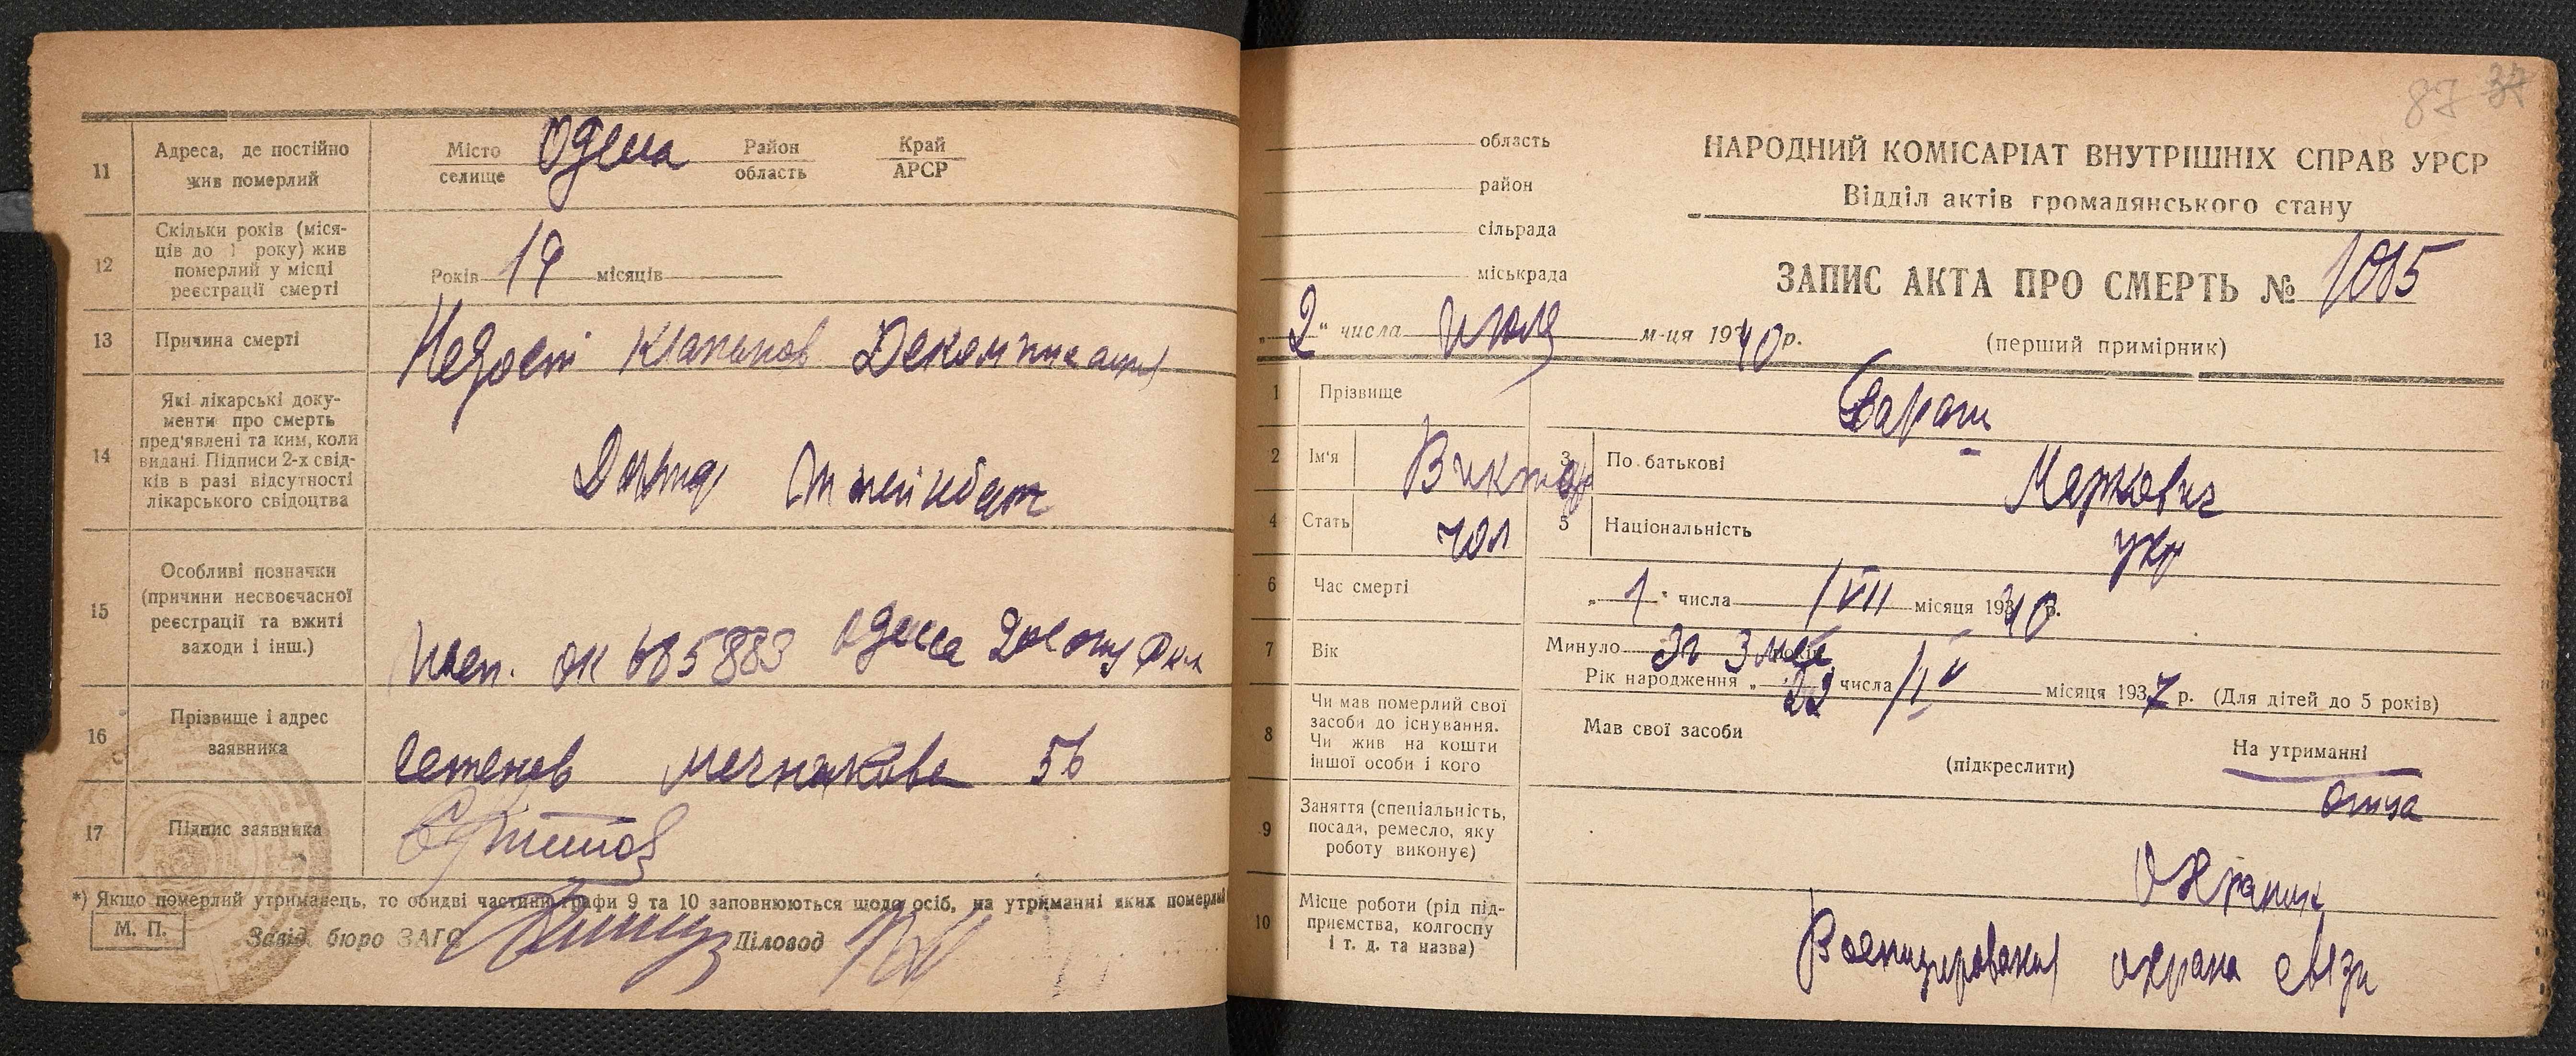 11
Адреса, де постійно
жив померлий
Місто
селище
Одесса
Район
область
Край
АРСР
12
Скільки років (міся-
ців до 1 року) жив
померлий у місці
реєстрації смерті
Років 19 місяців
13
Причина смерті
Недост клапанов Декомпенсация
14
Які лікарські доку-
менти про смерть
пред'явлені та ким, коли
видані. Підписи 2-х свід-
ків в разі відсутності
лікарського свідоцтва
15
Особливі позначки
(причини несвоєчасної
реєстрації та вжиті
заходи і інш.)
685883 Одесса
16
Прізвище і адрес
заявника
Мечникова 56
17
Підпис заявника
*) Якщо померлий утриманець, то обидві частини графи 9 та 10 заповнюються щодо осіб, на утриманні яких померлий
М. П.
Завід. бюро ЗАГС
Діловод
87 37
область
район
сільрада
міськрада
НАРОДНИЙ КОМІСАРІАТ ВНУТРІШНІХ СПРАВ УРСР
Відділ актів громадянського стану
ЗАПИС АКТА ПРО СМЕРТЬ № 1085
„2" числа июля м-ця 1940 р.
(перший примірник)
1
Прізвище
2
Ім'я
Виктор
3
По батькові
Маркович
4
Стать
чол
5
Національність
укр
6
Час смерті
„1" числа VII місяця 1940 р.
7
Вік
Минуло 3г 3 мес
Рік народження „22 числа IV місяця 1937 р. (Для дітей до 5 років)
8
Чи мав померлий свої
засоби до існування.
Чи жив на кошти
іншої особи і кого
Мав свої засоби
(підкреслити)
На утриманні
отца
9
Заняття (спеціальність,
посада, ремесло, яку
роботу виконує)
Охраник
10
Місце роботи (рід під-
приємства, колгоспу
і т. д. та назва)
охрана связи